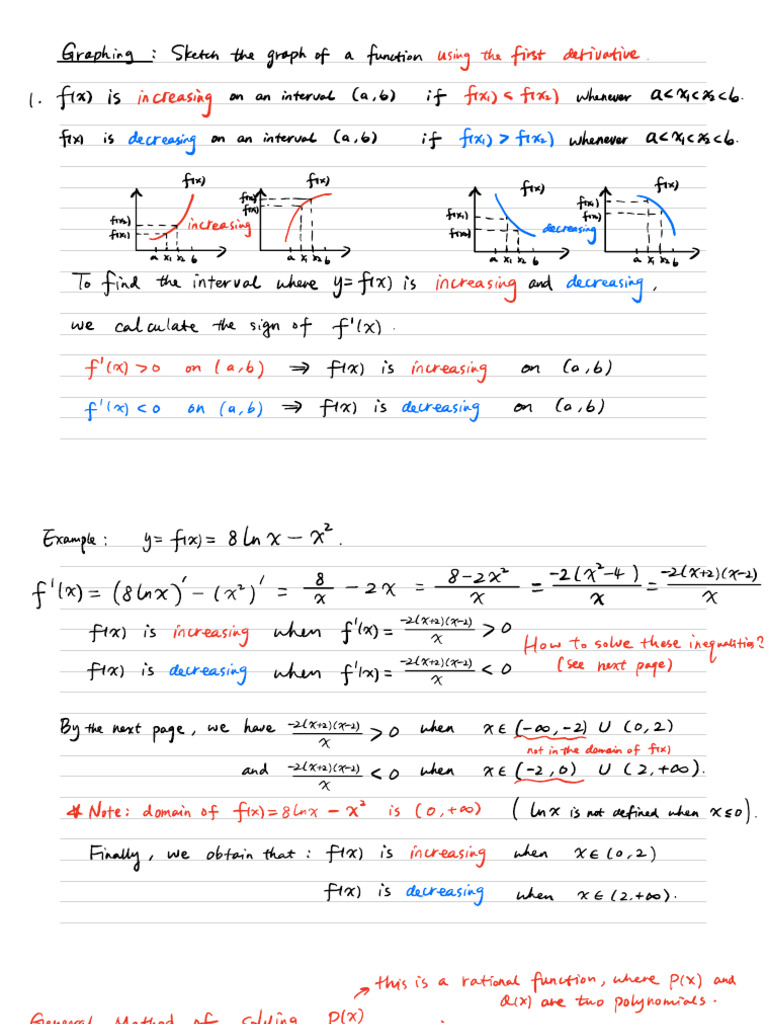 Graphing : Sketch the graph of a function using the first derivative.
1. f(x) is increasing on an interval (a,b) if f(x₁) < f(x₂) whenever a<x₁<x₂<b.
f(x) is decreasing on an interval (a,b) if f(x₁) > f(x₂) whenever a<x₁<x₂<b.
f(x) f(x) f(x) f(x)
f(x₂) f(x₁) increasing a x₁ x₂ b
f(x₂) f(x₁) a x₁ x₂ b
f(x₁) f(x₂) decreasing a x₁ x₂ b
f(x₁) f(x₂) a x₁ x₂ b
To find the interval where y=f(x) is increasing and decreasing,
we calculate the sign of f'(x).
f'(x) > 0 on (a,b) ⇒ f(x) is increasing on (a,b)
f'(x) < 0 on (a,b) ⇒ f(x) is decreasing on (a,b)
Example: y= f(x) = 8 ln x − x².
f'(x) = (8lnx)' − (x²)' = 8/x − 2x = (8−2x²)/x = −2(x²−4)/x = −2(x+2)(x−2)/x
f(x) is increasing when f'(x) = −2(x+2)(x−2)/x > 0
How to solve these inequalities?
f(x) is decreasing when f'(x) = −2(x+2)(x−2)/x < 0
(see next page)
By the next page, we have −2(x+2)(x−2)/x > 0 when x∈(−∞,−2) ∪ (0,2)
not in the domain of f(x)
and −2(x+2)(x−2)/x < 0 when x∈(−2,0) ∪ (2,+∞).
* Note: domain of f(x)=8lnx − x² is (0,+∞) (lnx is not defined when x≤0).
Finally, we obtain that : f(x) is increasing when x∈(0,2)
f(x) is decreasing when x∈(2,+∞).
this is a rational function, where P(x) and
Q(x) are two polynomials.
General Method of solving P(x)